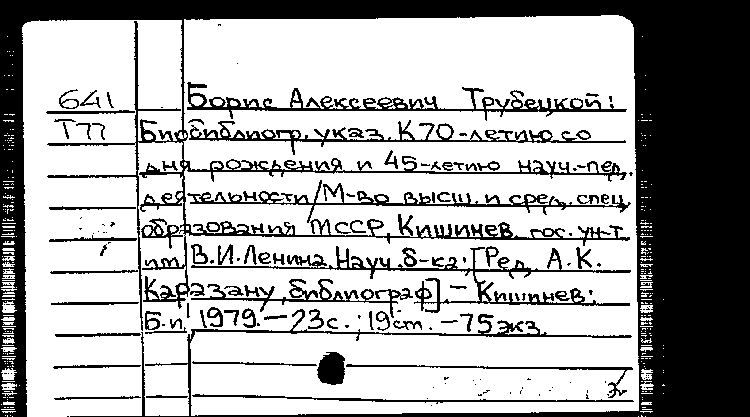 641 Борис Алексеевич Трубецкой:
Т77 Биобиблиогр. указ. К 70-летию со
дня рождения и 45-летию науч.-пед.
деятельности/М-во высш. и сред. спец.
образования МССР, Кишинев. гос. ун-т
им. В.И.Ленина. Науч. б-ка; [Ред. А.К.
Каразану, библиограф]. - Кишинев:
Б.и. 1979. - 23с.; 19 ст. - 75 экз.